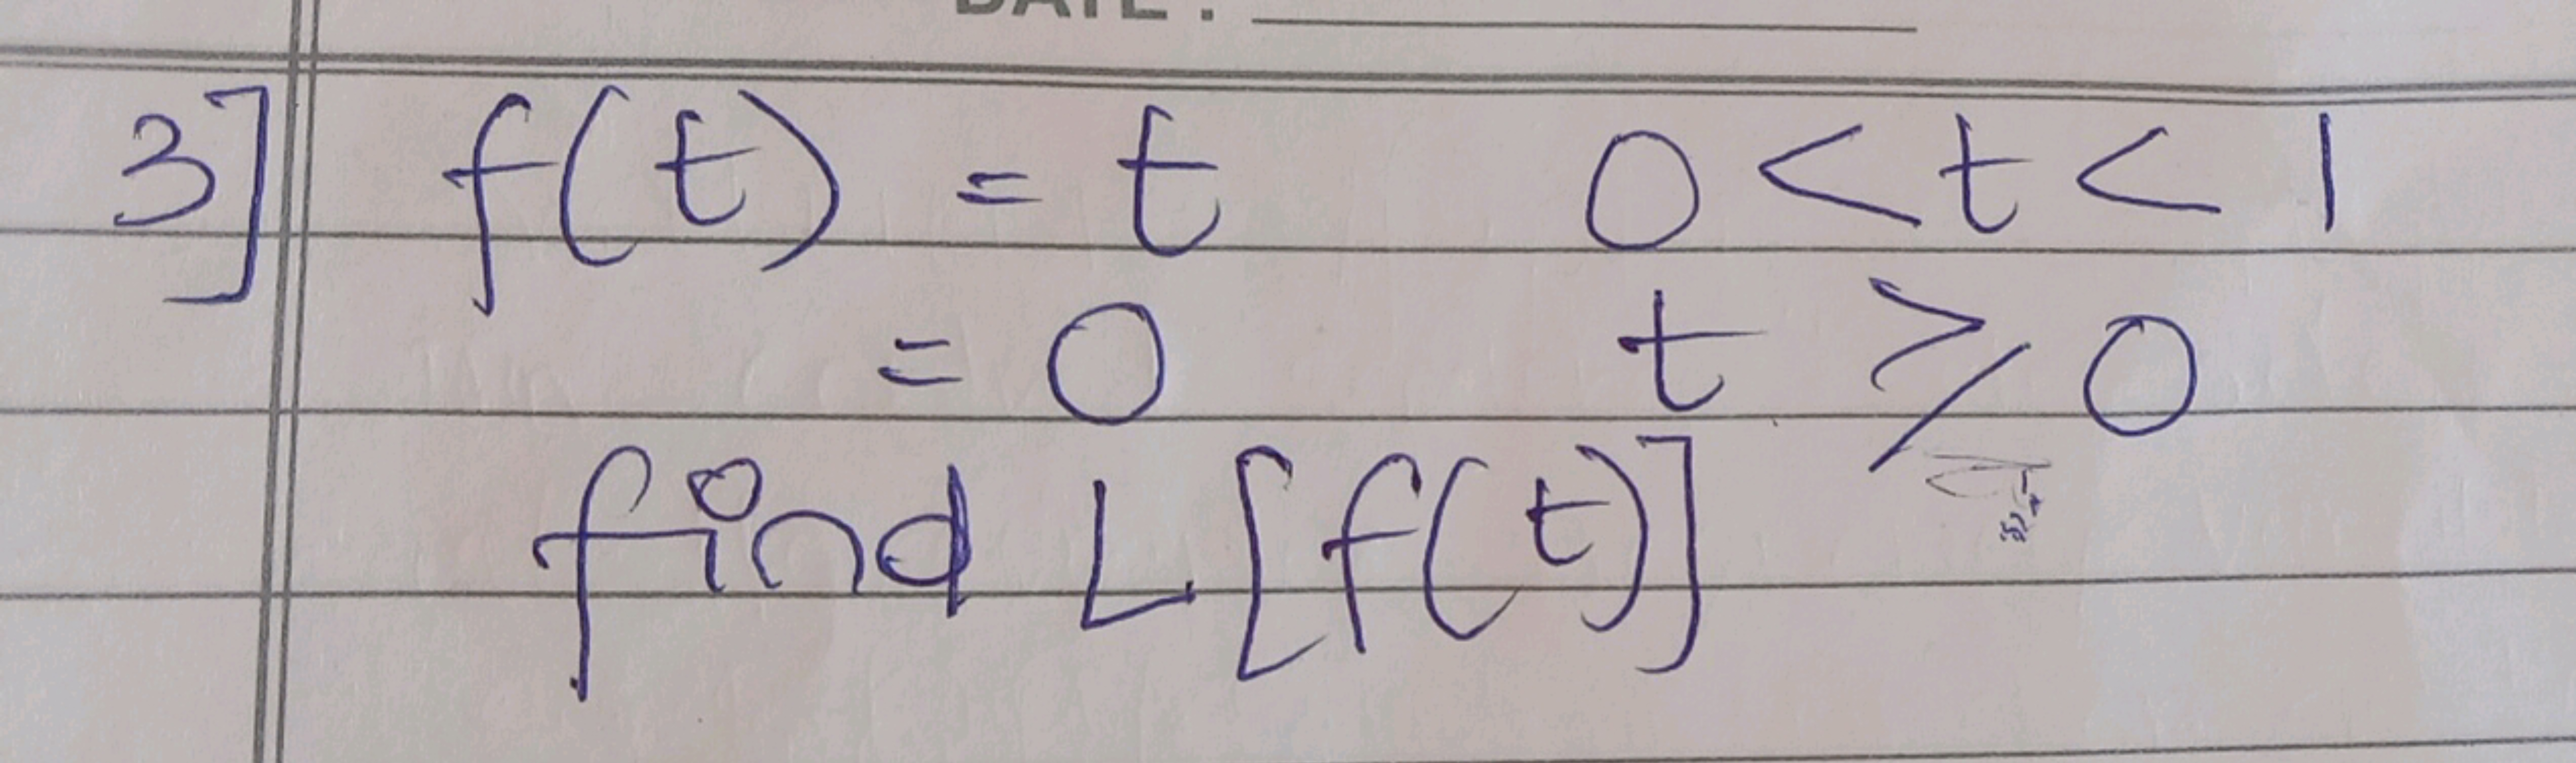 DATE :
3] f(t) = t 0 < t < 1
= 0 t ⩾ 0
find L[f(t)]